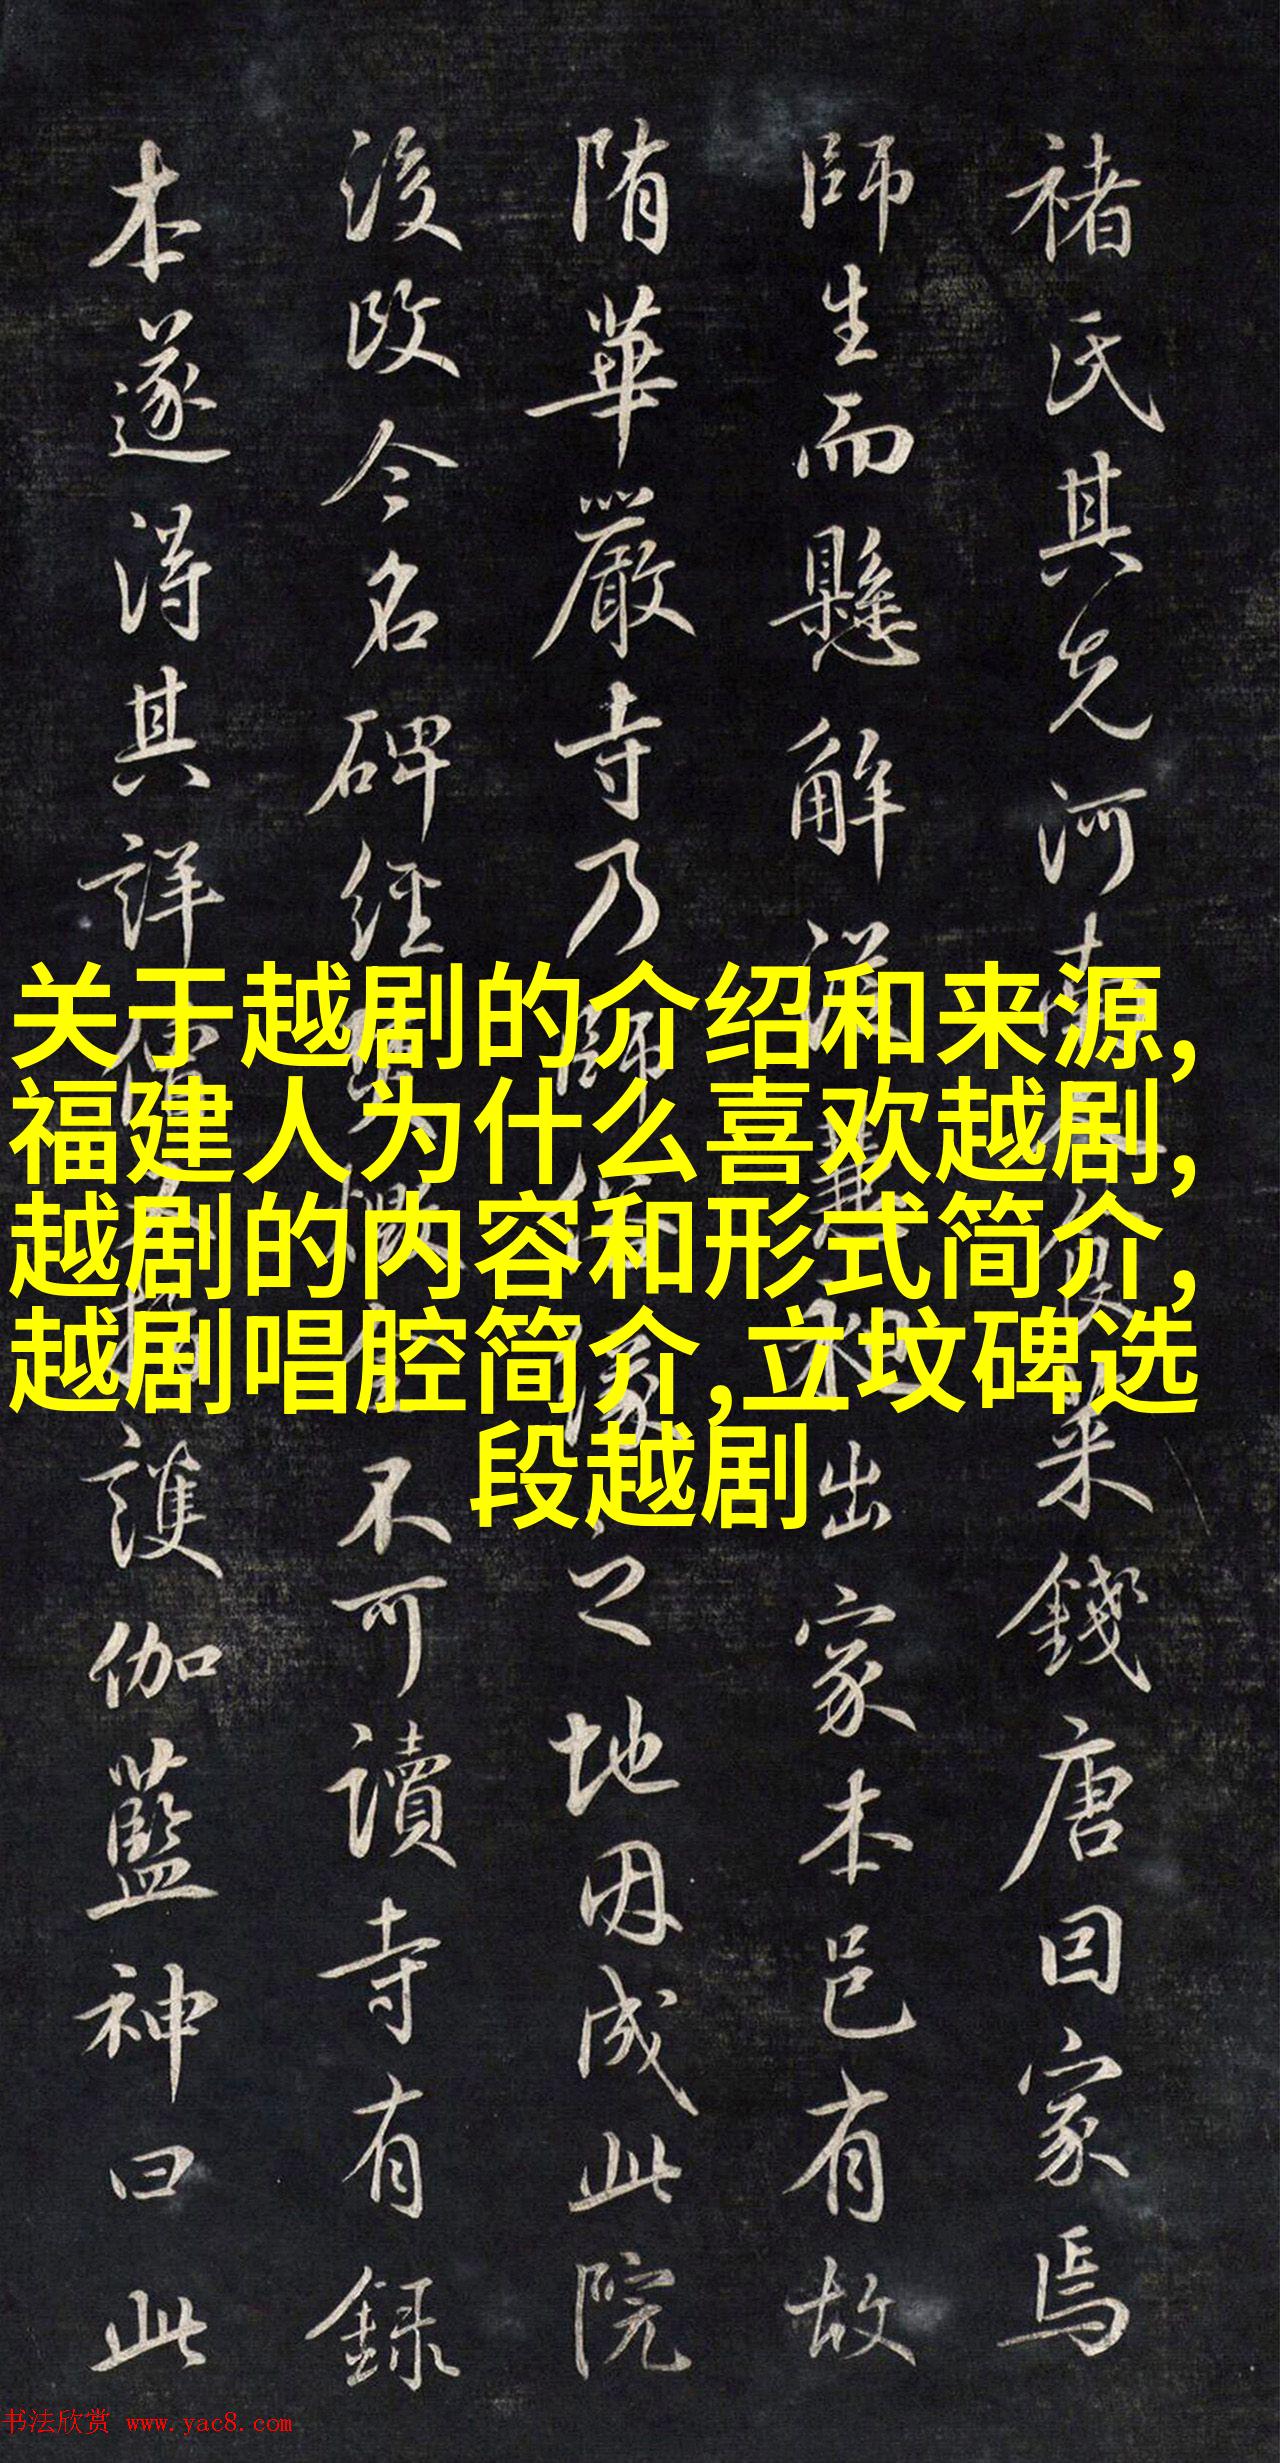 褚氏其先河南来錢唐因家焉
師生而懸解出家本邑有故
隋華嚴寺乃師之地因成此院
後改今名碑經不可讀寺有録
本遂得其詳護伽藍神曰此
关于越剧的介绍和来源,
福建人为什么喜欢越剧,
越剧的内容和形式简介,
越剧唱腔简介,立坟碑选
段越剧
书法欣赏 www.yac8.com